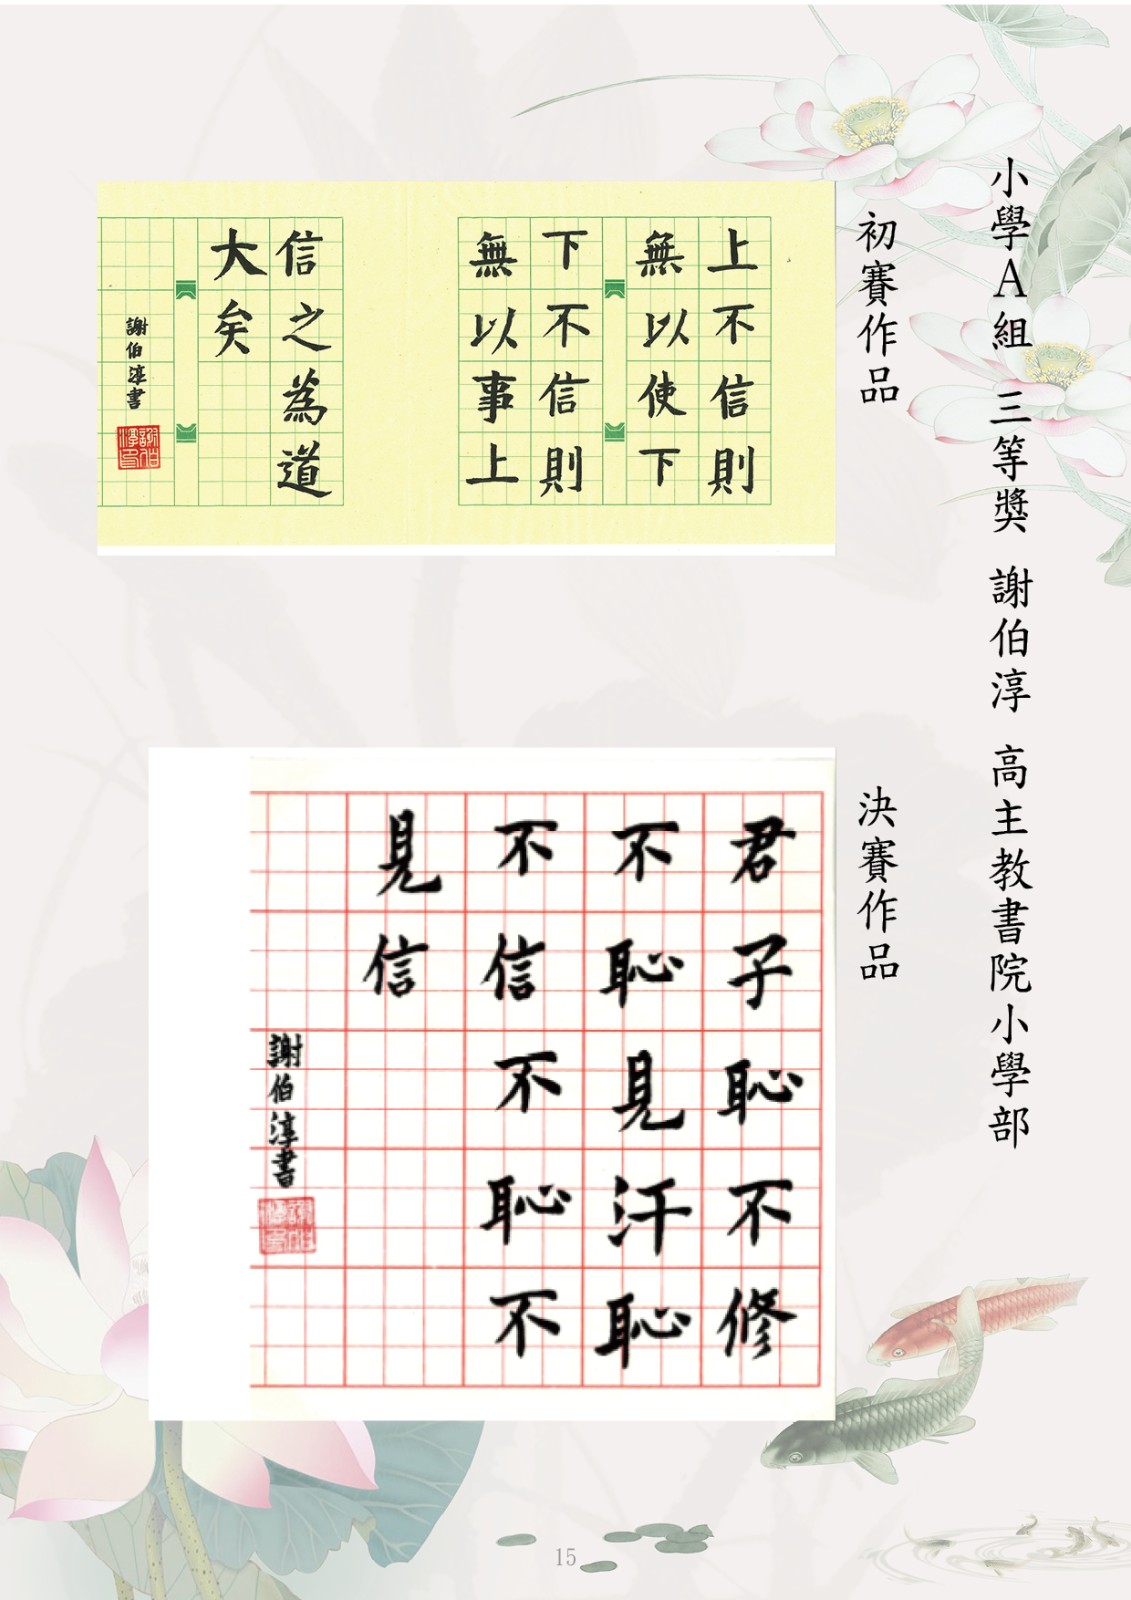 小學A組 三等獎 謝伯淳 高主教書院小學部
初賽作品
上不信則
無以使下
下不信則
無以事上
信之為道
大矣
謝伯淳書
決賽作品
君子恥不修
不恥見汙恥
不信不恥不
見信
謝伯淳書
15